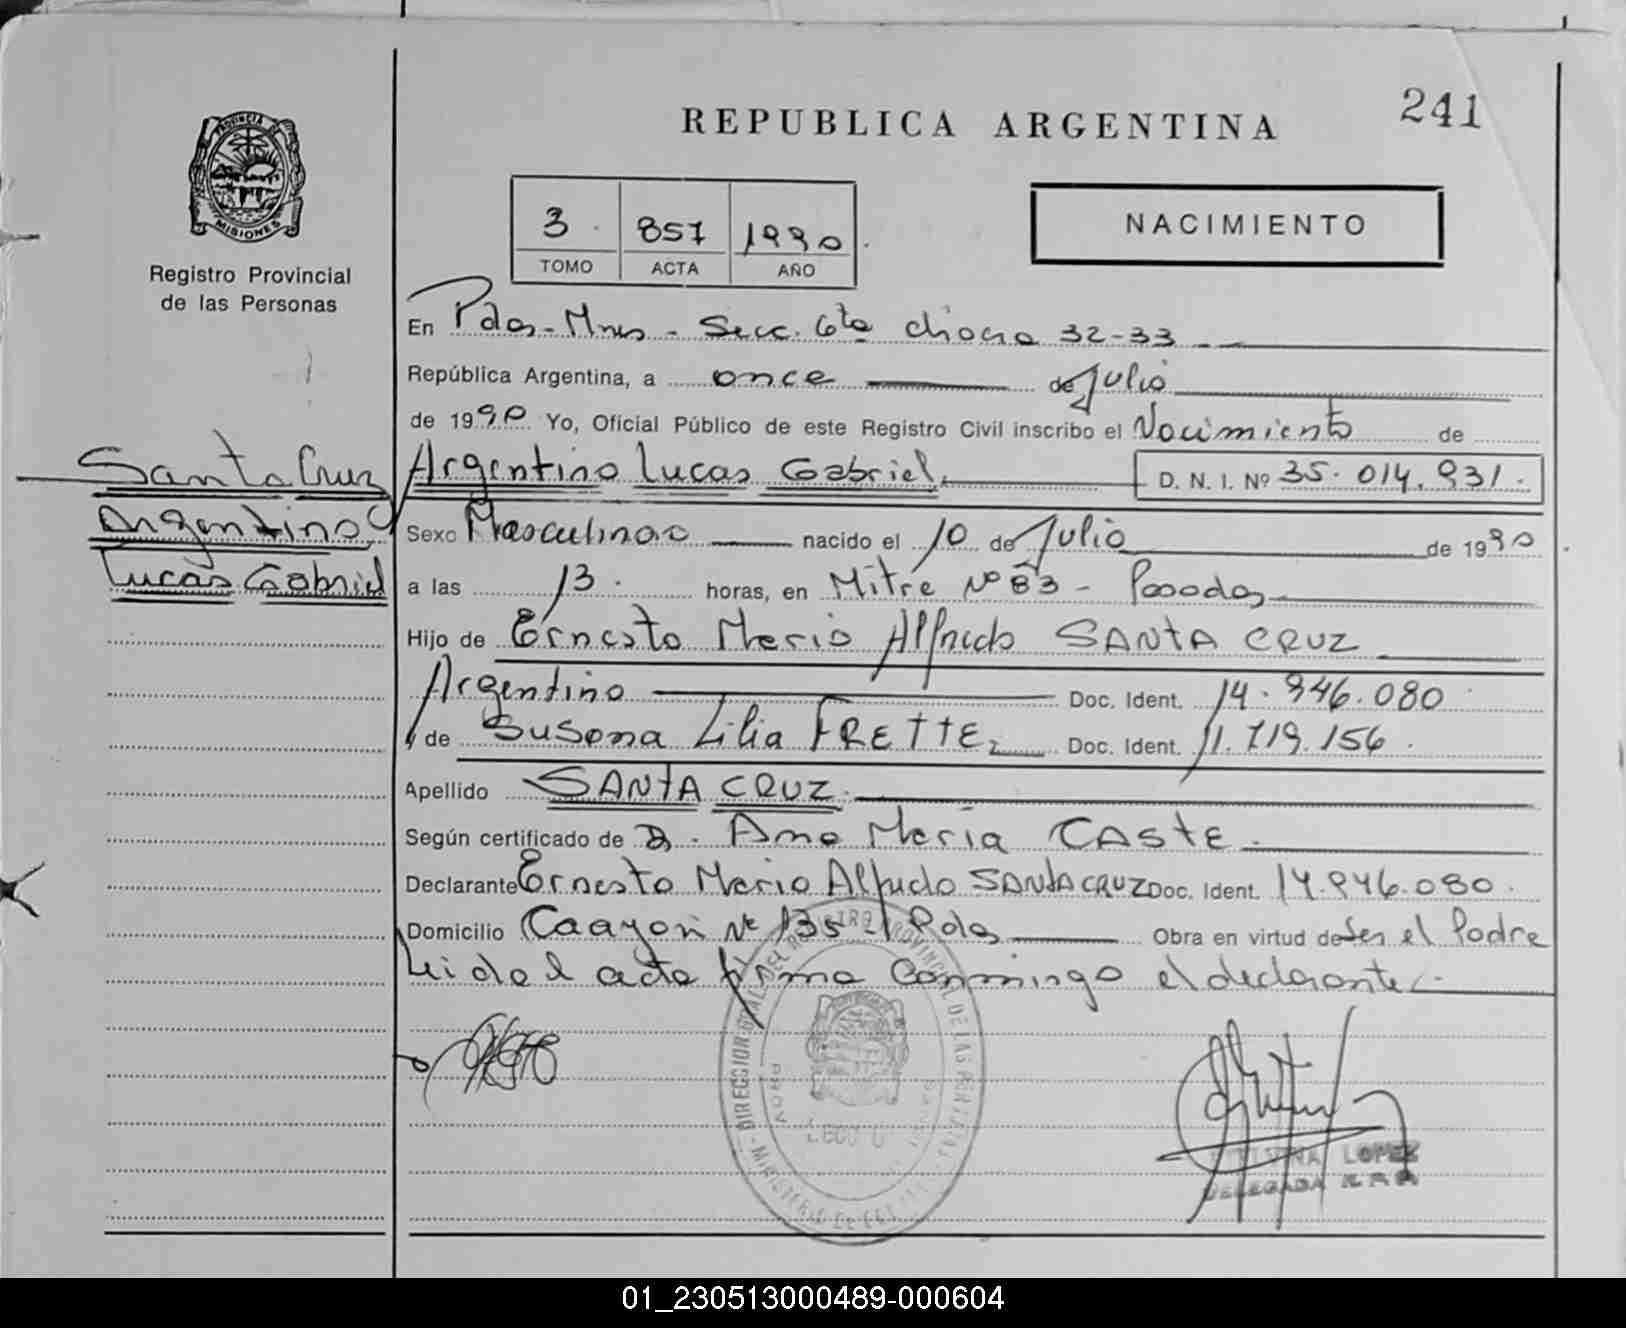 241
REPUBLICA ARGENTINA
PROVINCIA DE
MISIONES
Registro Provincial
de las Personas
3 857 1990
TOMO ACTA AÑO
NACIMIENTO
En Pdas - Mnes - Secc. 6ta chacra 32-33
República Argentina, a once de Julio
de 1990 Yo, Oficial Público de este Registro Civil inscribo el Nacimiento de
Santa Cruz
Argentino Lucas Gabriel
D. N. I. Nº 35.014.931.
Argentino
Lucas Gabriel
Sexo Masculino nacido el 10 de Julio de 1990
a las 13 horas, en Mitre Nº 83 - Posadas
Hijo de Ernesto Mario Alfredo SANTA CRUZ
Argentino Doc. Ident. 14.946.080
y de Susana Lilia FRETTE Doc. Ident. 11.719.156.
Apellido SANTA CRUZ.
Según certificado de Ana María CASTE.
Declarante Ernesto Mario Alfredo SANTA CRUZ Doc. Ident. 14.946.080.
Domicilio Nº 135 - Pdas Obra en virtud de Ser el Padre
Leida el acta firma Conmingo el declarante
LOPEZ
DELEGADA
01_230513000489-000604